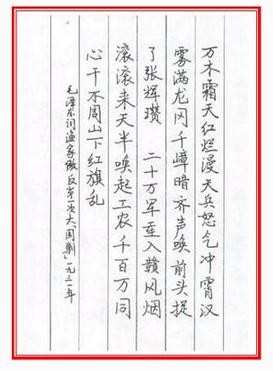 万木霜天红烂漫天兵怒气冲霄汉
雾满龙冈千嶂暗齐声唤 前头捉
了张辉瓒 二十万军重入赣风烟
滚滚来天半唤起工农千百万同
心干不周山下红旗乱
毛泽东词渔家傲反第一次大「围剿」一九三一年